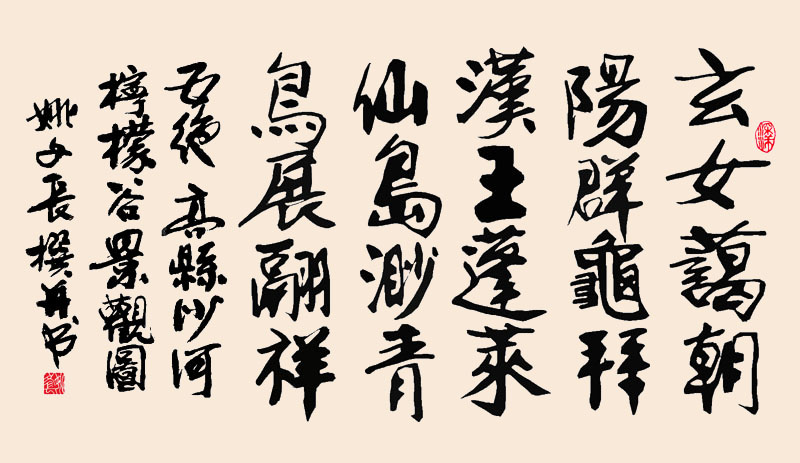 玄女謁朝
陽群龜拜
漢王蓬萊
仙島渺青
鳥展翮祥
五絕 高縣沙河
檸檬谷景觀圖
姚文長撰并书